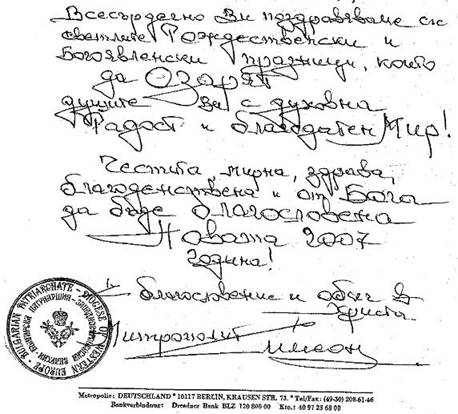 Всесърдечно Ви поздравяваме със
светлите Рождественски и
Богоявленски празници, които
да Озарят
душите Ви с духовна
Радост и благодатен Мир!
Честита, мирна, здрава,
благоденствена и от Бога
да бъде благословена
Новата 2007
година!
С благословение и обич в
Христа
Митрополит Симеон
BULGARIAN PATRIARCHATE - DIOCESE OF WESTERN EUROPE
Metropolie: DEUTSCHLAND * 10117 BERLIN, KRAUSEN STR. 73. * Tel/Fax: (49-30) 208-61-46
Bankverbindung: Dresdner Bank BLZ 120 800 00 Kto.: 40 97 23 68 00